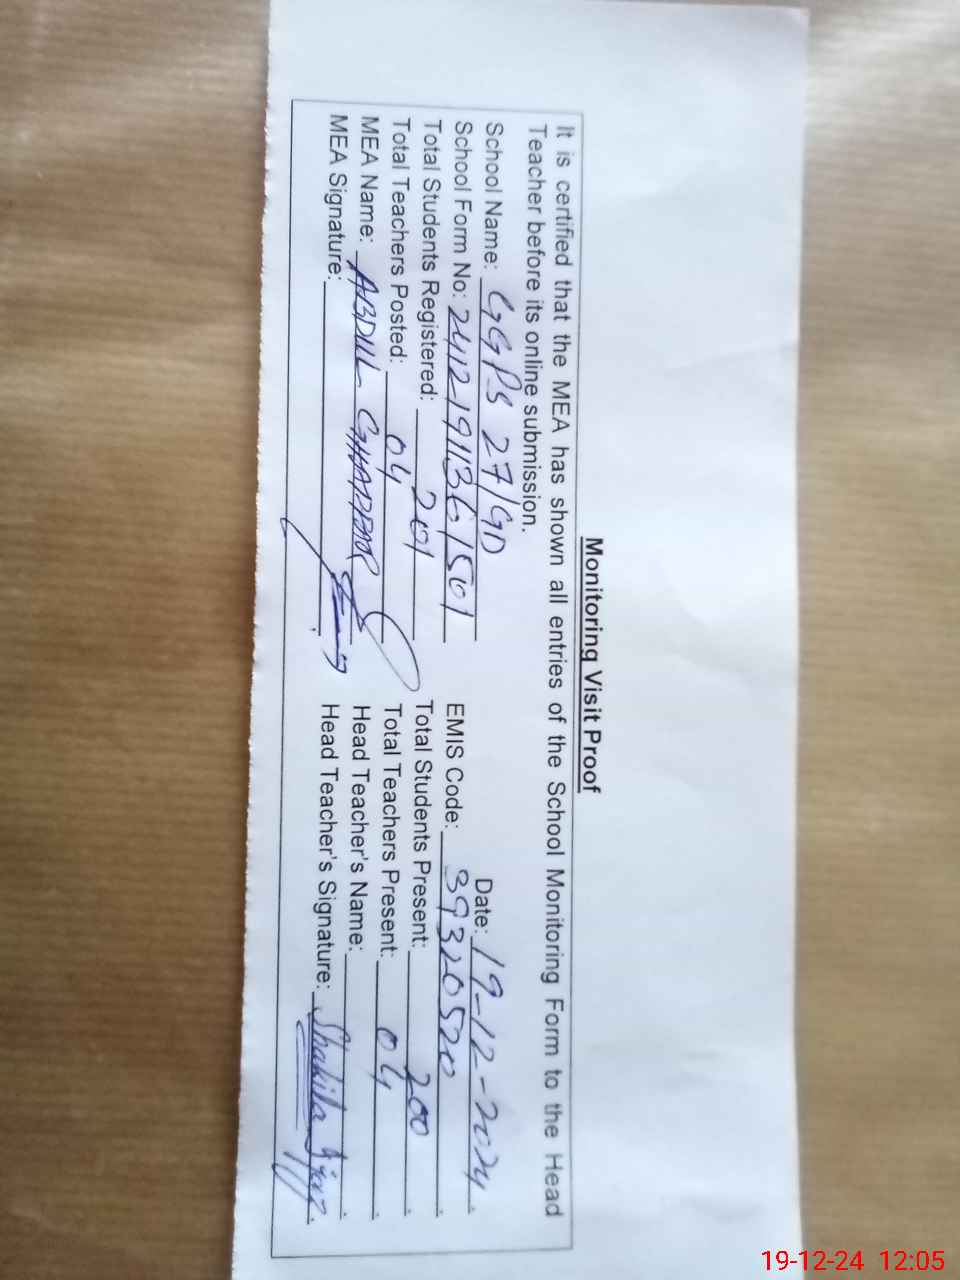 Monitoring Visit Proof
It is certified that the MEA has shown all entries of the School Monitoring Form to the Head
Teacher before its online submission.
School Name: GGPS 27/GD Date: 19-12-2024
School Form No: 24121911361501 EMIS Code: 39320520
Total Students Registered: 201 Total Students Present: 200
Total Teachers Posted: 04 Total Teachers Present: 04
MEA Name: ABDUL GHAFFAR Head Teacher's Name:
MEA Signature: Head Teacher's Signature: Shakila
19-12-24 12:05